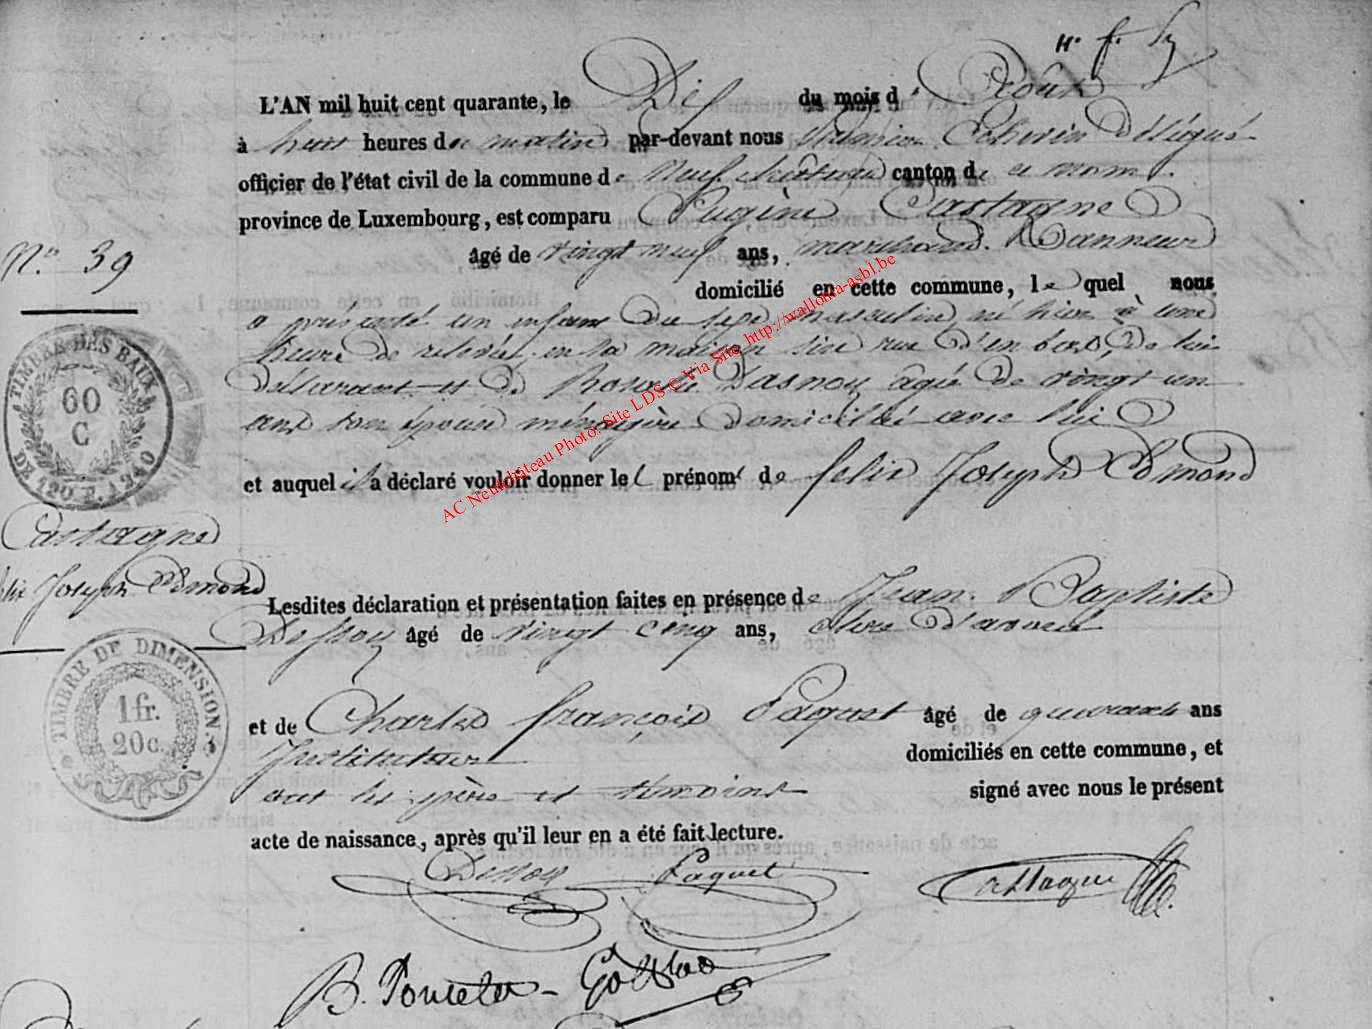 L'AN mil huit cent quarante, le Dix du mois d'Août
à huit heures du matin par-devant nous délégué
officier de l'état civil de la commune de Neufchâteau canton de ce nom
province de Luxembourg, est comparu Eugène Castagne
N° 39
âgé de vingt neuf ans, marchand Tanneur
domicilié en cette commune, lequel nous
a présenté un enfant du sexe masculin né hier à une
heure de relevée en sa maison sise rue d'en bas, de lui
déclarant et de Dasnoy âgée de vingt un
ans son épouse ménagère domiciliée avec lui
et auquel il a déclaré vouloir donner les prénoms de felix Joseph Edmond
TIMBRE DES BAUX
60
C
DE 120 F. A 240
AC Neufchâteau Photo: Site LDS © Via Site http://wallonia-asbl.be
Castagne
felix Joseph Edmond
Lesdites déclaration et présentation faites en présence de Jean Baptiste
Dessoy âgé de vingt cinq ans, clerc d'avoué
TIMBRE DE DIMENSION.
1 fr.
20 c.
et de Charles françois Paquet âgé de quarante ans
Instituteur domiciliés en cette commune, et
ont les père et témoins signé avec nous le présent
acte de naissance, après qu'il leur en a été fait lecture.
Dessoy Paquet Castagne
B. Poncelet